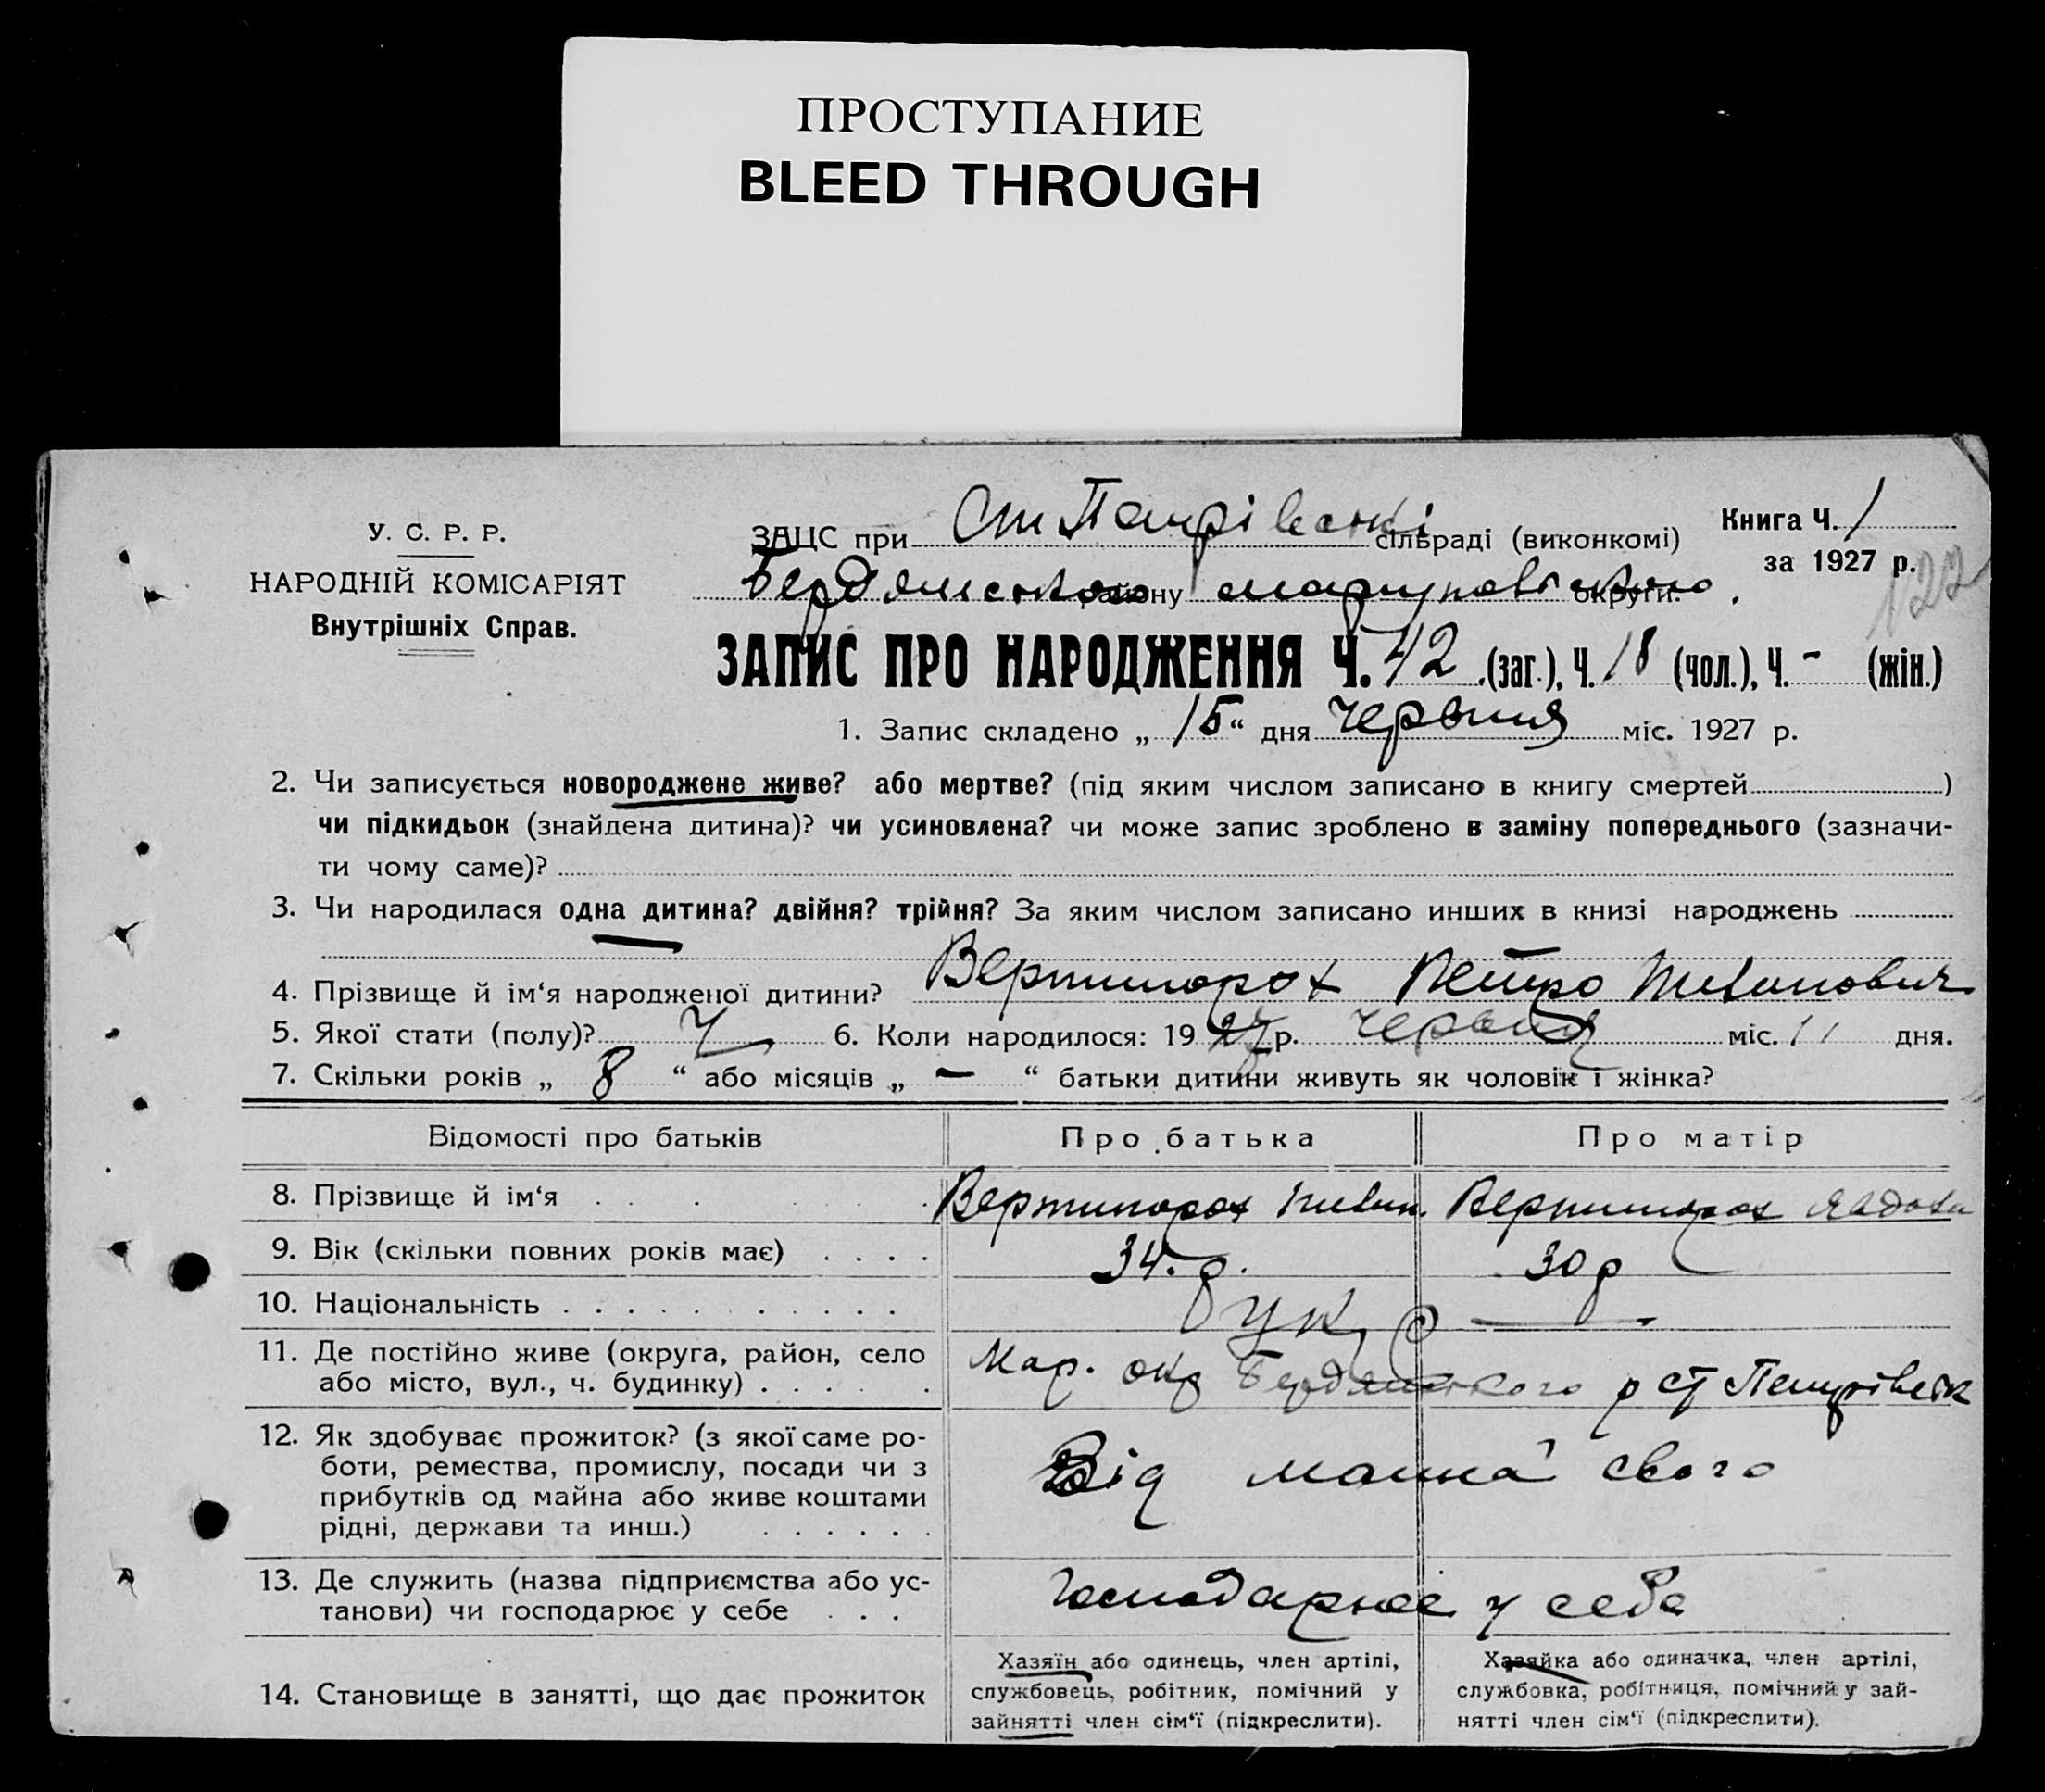 ПРОСТУПАНИЕ
BLEED THROUGH
У. С. Р. Р.
НАРОДНІЙ КОМІСАРІЯТ
Внутрішніх Справ.
ЗАЦС при Ст Петрівскі сільраді (виконкомі)
Книга Ч. 1
за 1927 р.
122
Бердянського району Маріупольського округи.
ЗАПИС ПРО НАРОДЖЕННЯ Ч. 42 (заг.), Ч. 18 (чол.), Ч. - (жін.)
1. Запис складено „ 15 “ дня червня міс. 1927 р.
2. Чи записується новороджене живе? або мертве? (під яким числом записано в книгу смертей )
чи підкидьок (знайдена дитина)? чи усиновлена? чи може запис зроблено в заміну попереднього (зазначи-
ти чому саме)?
3. Чи народилася одна дитина? двійня? трійня? За яким числом записано инших в книзі народжень
4. Прізвище й ім‘я народженої дитини? Вертипорох Петро
5. Якої стати (полу)? Ч 6. Коли народилося: 19 27 р. червня міс. 11 дня.
7. Скільки років „ 8 “ або місяців „ — “ батьки дитини живуть як чоловік і жінка?
Відомості про батьків
Про батька
Про матір
8. Прізвище й ім‘я Вертипорох Вертипорох
9. Вік (скільки повних років має) 34. р. 30 р
10. Національність Укр —
11. Де постійно живе (округа, район, село
або місто, вул., ч. будинку)
Мар. окр Бердянського р ст Петрівск
12. Як здобуває прожиток? (з якої саме ро-
боти, ремества, промислу, посади чи з
прибутків од майна або живе коштами
рідні, держави та инш.)
Від майна свого
13. Де служить (назва підприємства або ус-
танови) чи господарює у себе
Господарює у себе
14. Становище в занятті, що дає прожиток
Хазяїн або одинець, член артілі,
службовець, робітник, помічний у
зайнятті член сім‘ї (підкреслити).
Хазяйка або одиначка, член артілі,
службовка, робітниця, помічний у зай-
нятті член сім‘ї (підкреслити).